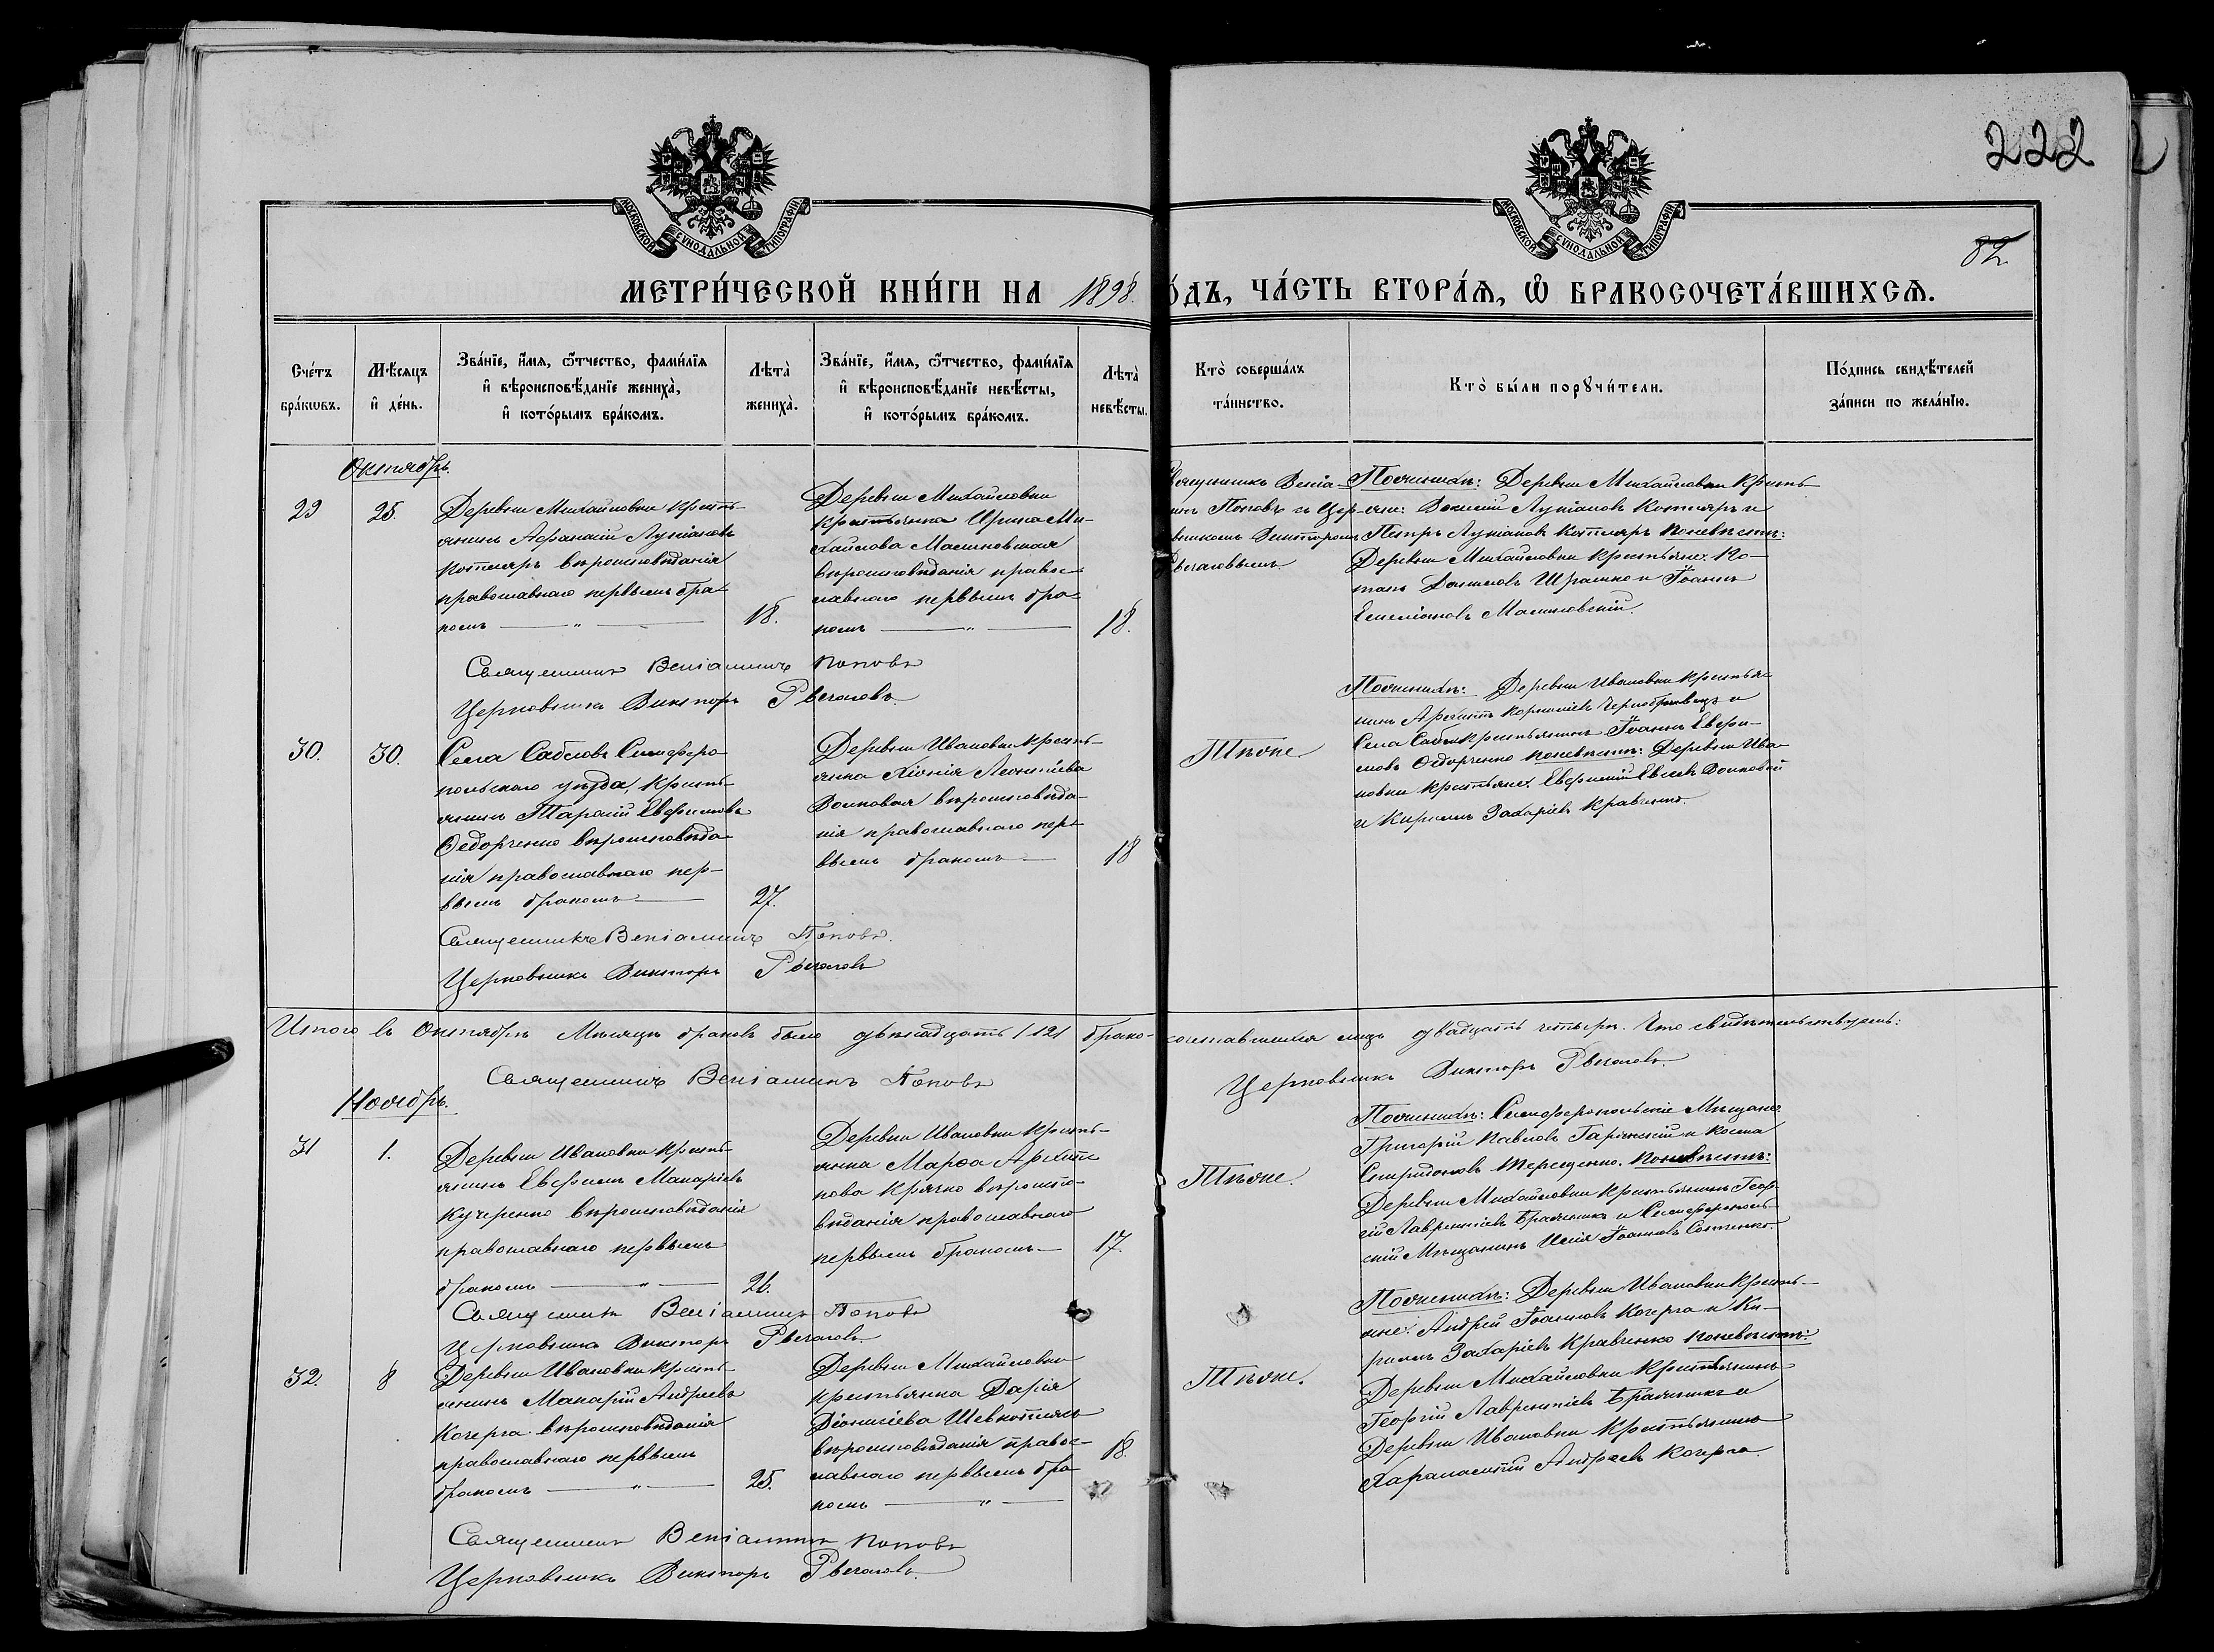 222
82
МОСКОВСКОЙ СѴНОДАЛЬНОЙ ТИПОГРАФІИ
МОСКОВСКОЙ СѴНОДАЛЬНОЙ ТИПОГРАФІИ
МЕТРИ́ЧЕСКОЙ КНИ́ГИ НА 1898. О́ДЪ, ЧА́СТЬ ВТОРА́Ѧ, Ѡ҆ БРАКОСОЧЕТА́ВШИХСѦ.
Сче́тъ
бра́кѡвъ.
Мѣ́сѧцъ
и҆ де́нь.
Зва́нїе, и҆́мѧ, ѻ҆́тчество, фами́лїѧ
и҆ вѣроисповѣ́данїе жениха̀,
и҆ кото́рымъ бра́комъ.
Лѣта̀
жениха̀.
Зва́нїе, и҆́мѧ, ѻ҆́тчество, фами́лїѧ
и҆ вѣроисповѣ́данїе невѣ́сты,
и҆ кото́рымъ бра́комъ.
Лѣта̀
невѣ́сты.
Кто̀ соверша́лъ
та́инство.
Кто̀ бы́ли порꙋчи́тели.
По́дпись свидѣ́телей
за́писи по жела́нїю.
Октябрь.
29
25.
Деревни Михайловки кресть-
янинъ Афанасій Лукіановъ
Котляръ вѣроисповѣданія
православнаго первымъ бра-
комъ — " —
18.
Деревни Михайловки
крестьянка Ирина Ми-
хайлова Малиновская
вѣроисповѣданія правос-
лавнаго первымъ бра-
комъ — " —
18.
Священникъ Веніа-
минъ Поповъ съ Цер-
вникомъ Викторомъ
Рвачовымъ.
По женихѣ: Деревни Михайловки Кресть-
яне: Василій Лукіановъ Котляръ и
Петръ Лукіановъ Котляръ по невѣстѣ:
Деревни Михайловки крестьяне: По-
тапъ Даниловъ Шрамко и Іоаннъ
Емеліановъ Малиновскій.
Священникъ Веніаминъ Поповъ
Церковникъ Викторъ Рвачовъ
30.
30.
Села Сабловъ Симферо-
польскаго уѣзда, кресть-
янинъ Тарасій Евфимовъ
Ѳедорченко вѣроисповѣда-
нія православнаго пер-
вымъ бракомъ —
27.
Деревни Ивановки кресть-
янка Хіонія Леонтіева
Волковая вѣроисповѣда-
нія православнаго пер-
вымъ бракомъ —
18
Тѣ же.
По женихѣ: Деревни Ивановки крестья-
нинъ Архипъ Корниліевъ Чернобривецъ и
Села Саблы крестьянинъ Іоаннъ Евфи-
мовъ Ѳедорченко по невѣстѣ: Деревни Ива-
новки крестьяне: Евфимій Евсеевъ Волковой
и Кириллъ Захаріевъ Кравченко.
Священникъ Веніаминъ Поповъ.
Церковникъ Викторъ Рвачовъ
Итого въ Октябрѣ Мѣсяцѣ браковъ было двѣнадцать /12/ брако-сочетавшихся лицъ двадцать четыре. Что свидѣтельствуемъ:
Священникъ Веніаминъ Поповъ
Церковникъ Викторъ Рвачовъ
Ноябрь.
31
1.
Деревни Ивановки кресть-
янинъ Евфимъ Макаріевъ
Кучеренко вѣроисповѣданія
православнаго первымъ
бракомъ — " —
26.
Деревни Ивановки кресть-
янка Марѳа Архип-
пова Крячко вѣроиспо-
вѣданія православнаго
первымъ бракомъ —
17.
Тѣ же.
По женихѣ: Симферопольскіе Мѣщане
Григорій Павловъ Гаринскій и Косма
Спиридоновъ Терещенко. По невѣстѣ:
Деревни Михайловки крестьянинъ Геор-
гій Лаврентіевъ Бражникъ и Симферополь-
скій Мѣщанинъ Илія Іоанновъ Сотенко.
Священникъ Веніаминъ Поповъ
Церковникъ Викторъ Рвачовъ
32.
8
Деревни Ивановки кресть-
янинъ Макарій Андреевъ
Кочерга вѣроисповѣданія
православнаго первымъ
бракомъ — " —
25.
Деревни Михайловки
крестьянка Дарія
Діонисіева Шевкоплясъ
вѣроисповѣданія правос-
лавнаго первымъ бра-
комъ — " —
18.
Тѣ же.
По женихѣ: Деревни Ивановки Кресть-
яне: Андрей Іоанновъ Кочерга и Ки-
риллъ Захаріевъ Кравченко по невѣстѣ:
Деревни Михайловки Крестьянинъ
Георгій Лаврентіевъ Бражникъ и
Деревни Ивановки Крестьянинъ
Харалампій Андреевъ Кочерга.
Священникъ Веніаминъ Поповъ
Церковникъ Викторъ Рвачовъ